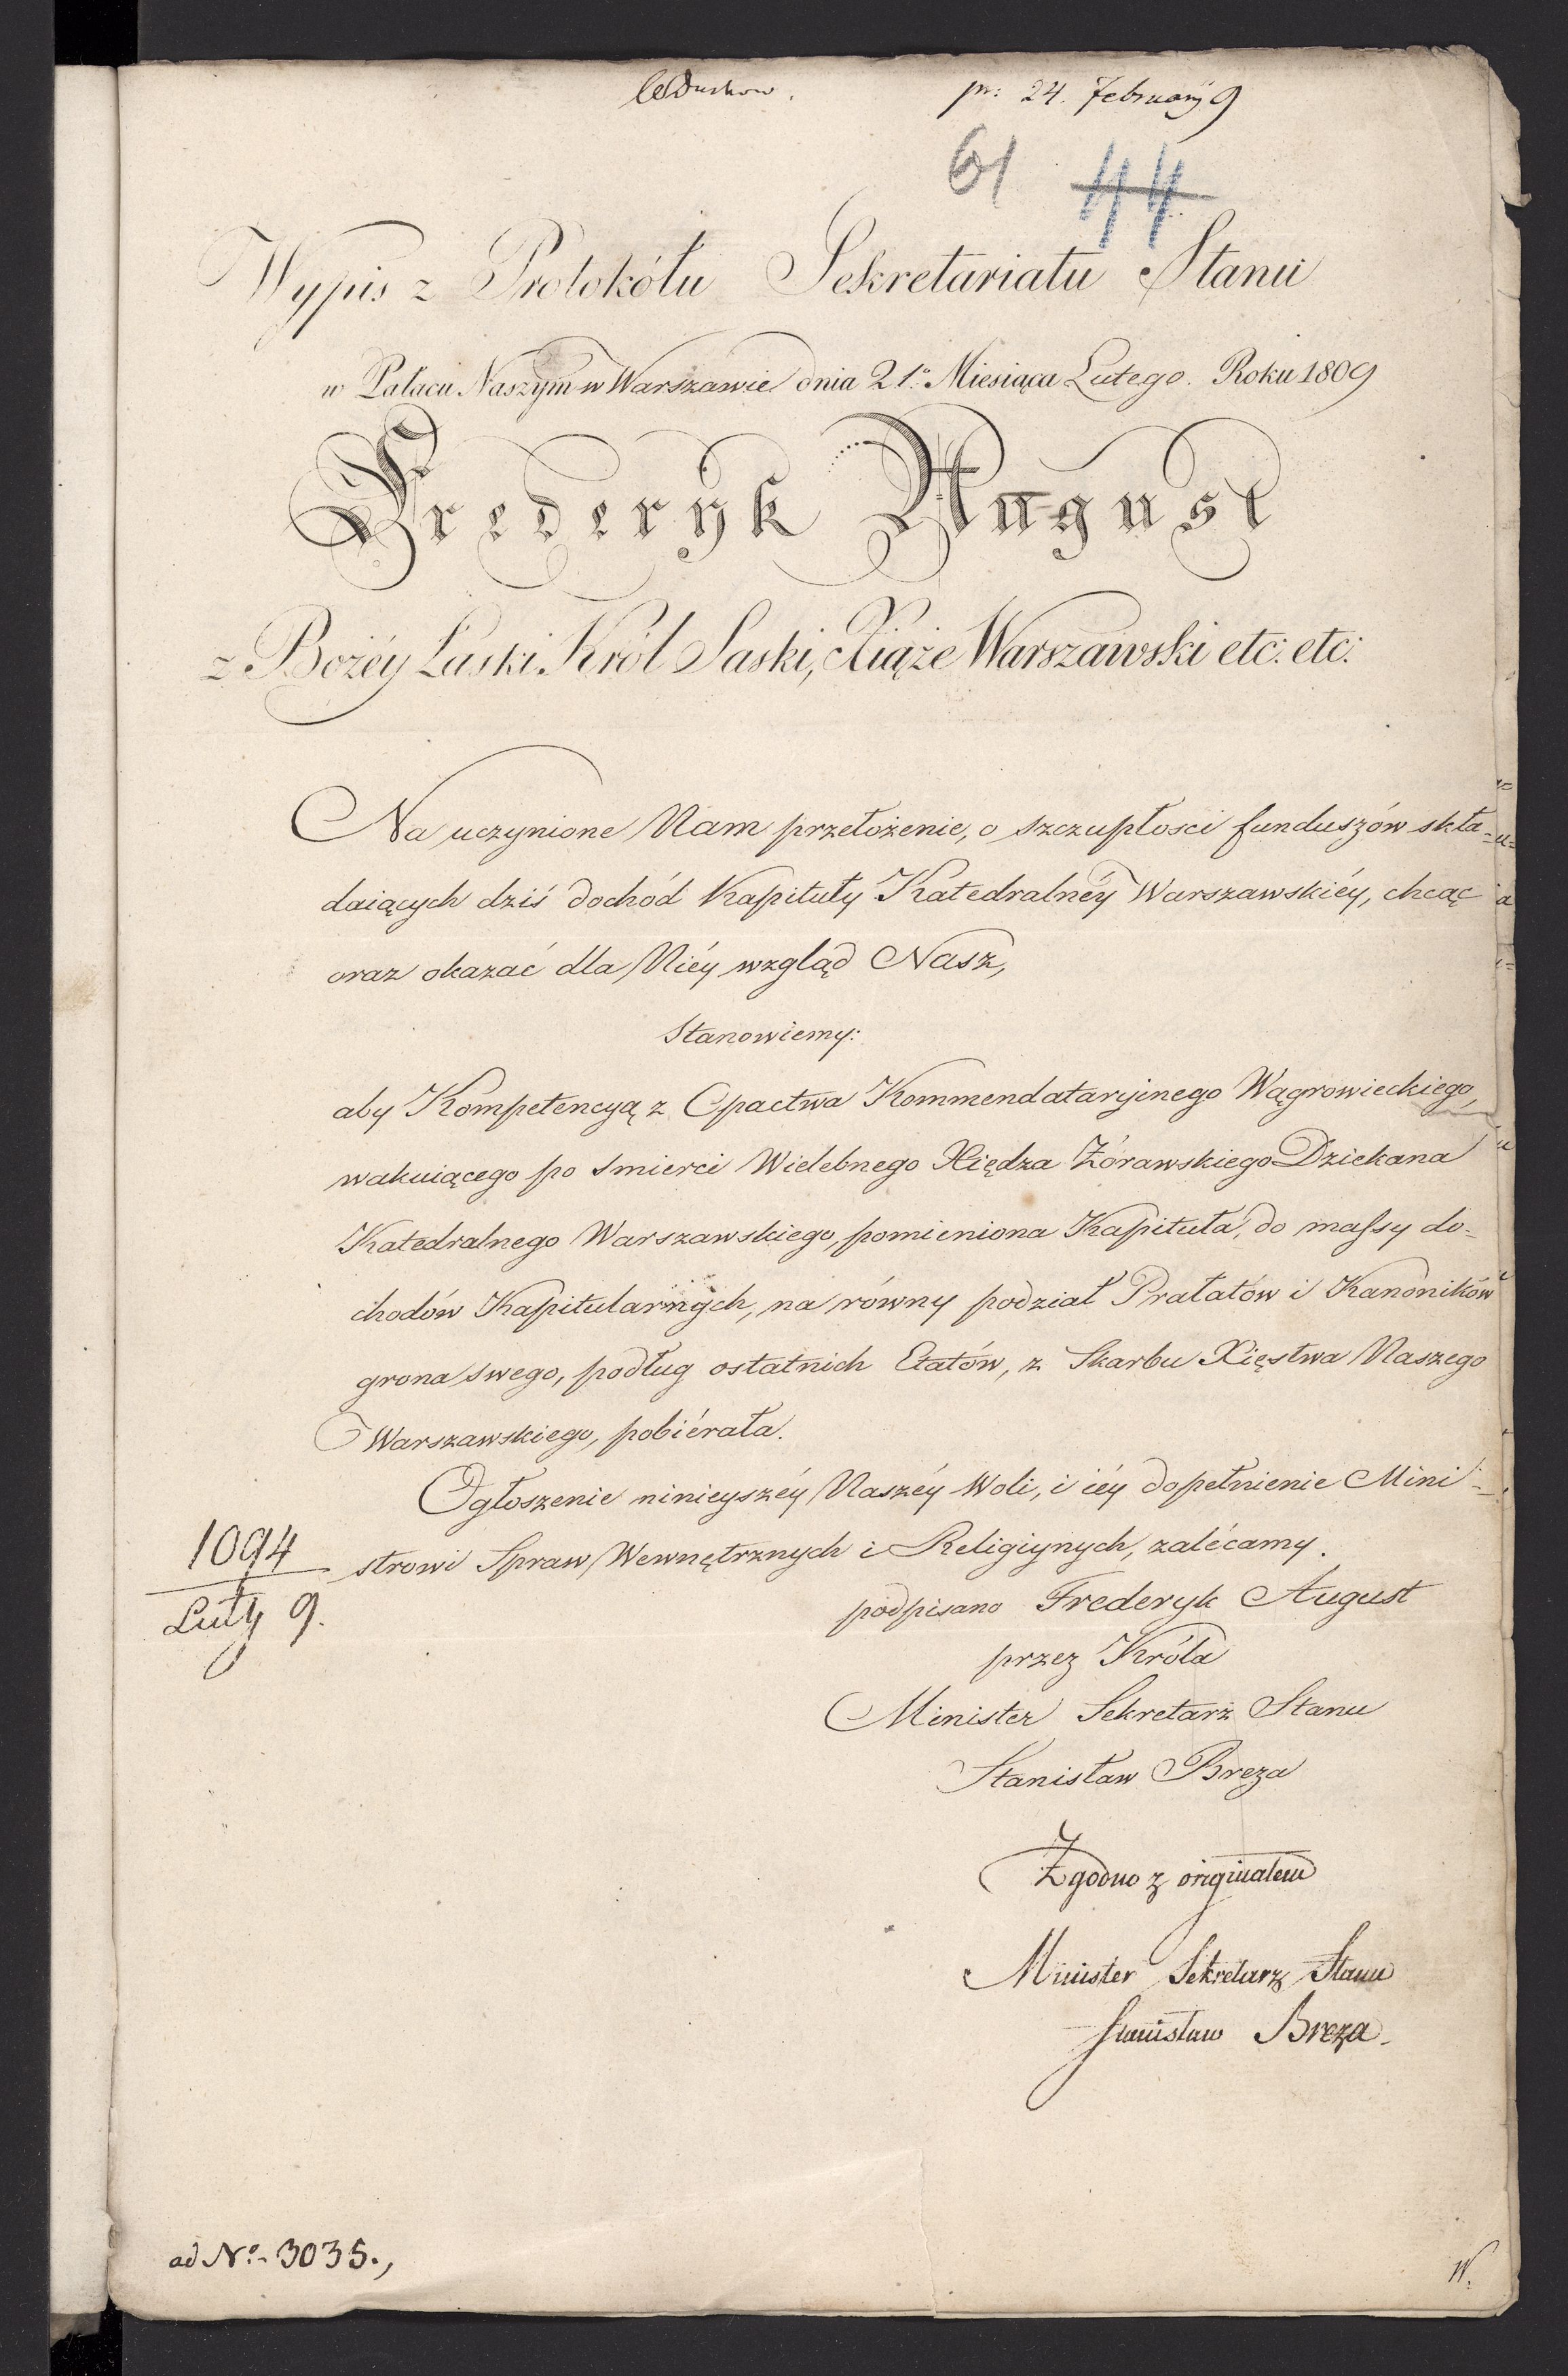 pr: 24. February 9
61 44
Wypis z Protokółu Sekretariatu Stanu
w Pałacu Naszym w Warszawie dnia 21.º Miesiąca Lutego. Roku 1809
Frederyk August
z Bożéy Łaski Król Saski, Xiąże Warszawski etc: etc:
Na uczynione Nam przełożenie, o szczupłosci funduszów skła-
daiących dziś dochód Kapituły Katedralnéy Warszawskiéy, chcąc
oraz okazać dla Niéy wzgląd Nasz,
Stanowiemy:
aby Kompetencyą z Opactwa Kommendataryinego Wągrowieckiego,
wakuiącego po Smierci Wielebnego Xiędza Żórawskiego Dziekana
Katedralnego Warszawskiego, pomieniona Kapituła, do massy do-
chodów Kapitularnych, na równy podział Prałatów i Kanoników
grona swego, podług ostatnich Etatów, z Skarbu Xięstwa Naszego
Warszawskiego, pobiérała.
Ogłoszenie ninieyszéy Naszéy Woli, i iéy dopełnienie Mini-
strowi Spraw Wewnętrznych i Religiynych, zalécamy.
1094
Luty 9.
podpisano Frederyk August
przez Króla
Minister Sekretarz Stanu
Stanisław Breza
Zgodno z originałem
Minister Sekretarz Stanu
Stanisław Breza
ad Nº. 3035.,
W.